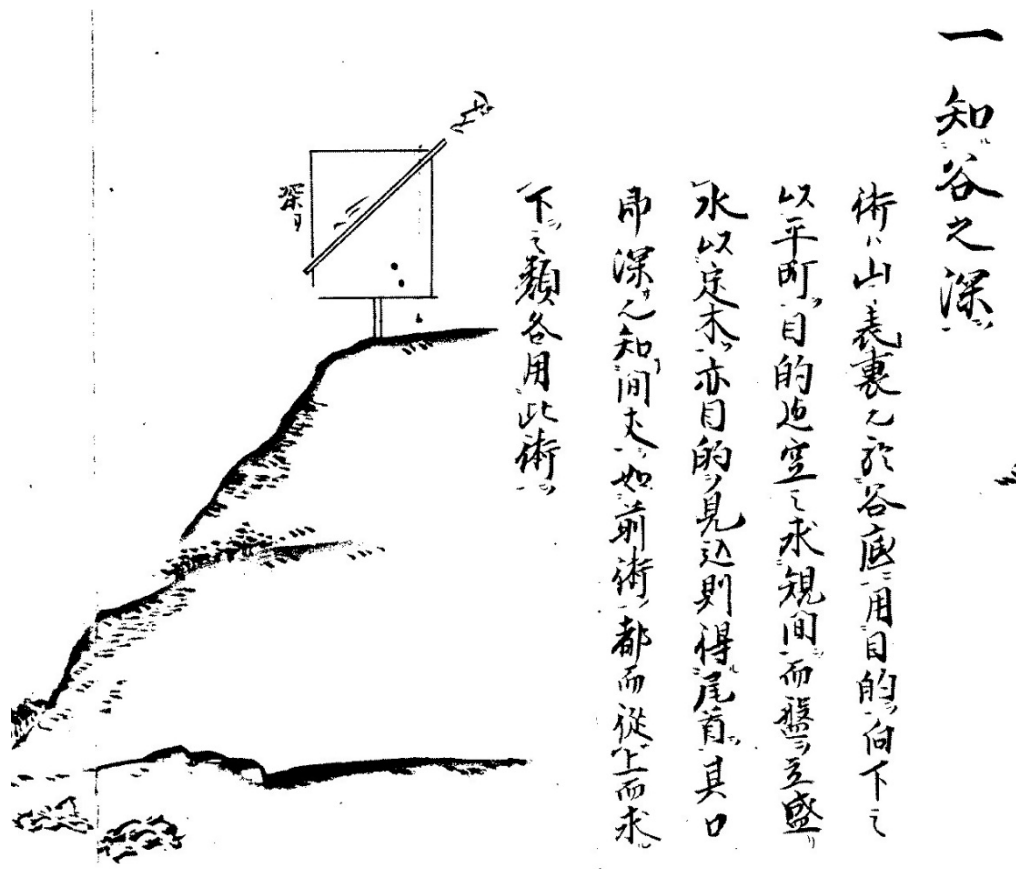 一 知谷之深
術ハ山表裏几於谷底ニ用目的ヲ向下之
以平町目的迄空之求規間而盤ヲ立盛
水以定木ヲ亦目的ヲ見込則得尾首其口
即深サ也知間丈如前術都而従上而求
下之類各用此術
深サ